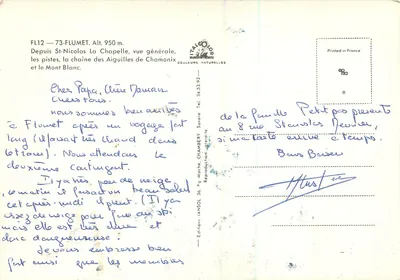 FL12 — 73-FLUMET. Alt. 950 m.
Depuis St-Nicolas La Chapelle, vue générale,
les pistes, la chaîne des Aiguilles de Chamonix
et le Mont Blanc.
COULEURS NATURELLES
Printed in France
Cher Papa, Chère Maman
Chers tous.
nous sommes bien arrivés
à Flumet après un voyage fort
long (il faisait chaud dans
le train). Nous attendons le
deuxième contingent.
Il y a très peu de neige,
ce matin il faisait un beau soleil
cet après-midi il pleut. (Il y a
assez de neige pour faire du ski
mais elle est très dure et
donc dangereuse.)
Je vous embrasse bien
fort ainsi que les membres
de la famille Petitpas présents
au 8 rue Stanislas Meunier,
si ma carte arrive à temps.
Bons Baisers